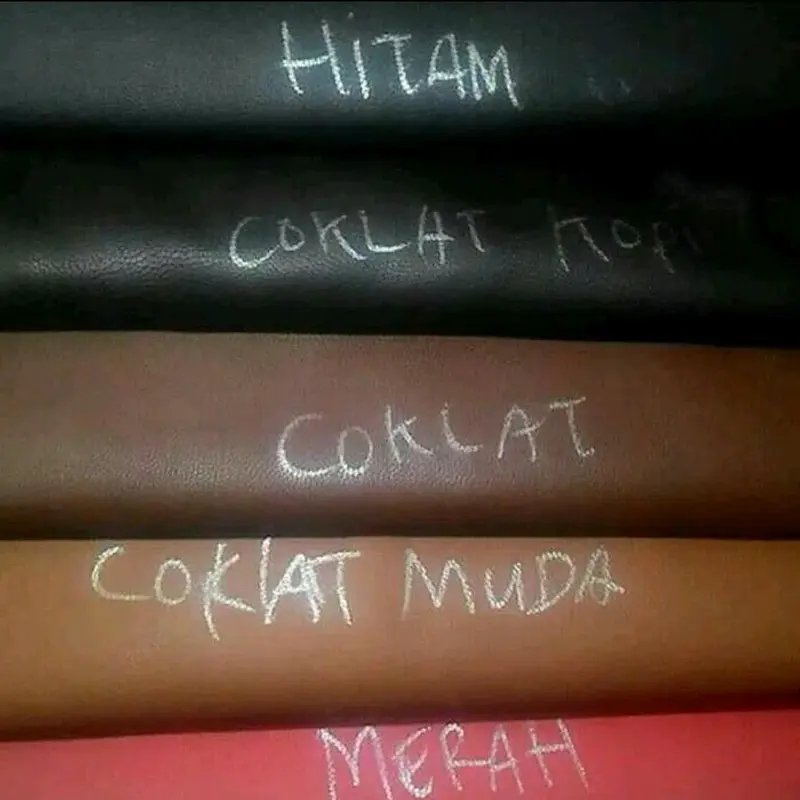 HiTAM
COKLAT KOPi
COKLAT
COKLAT MUDA
MERAH